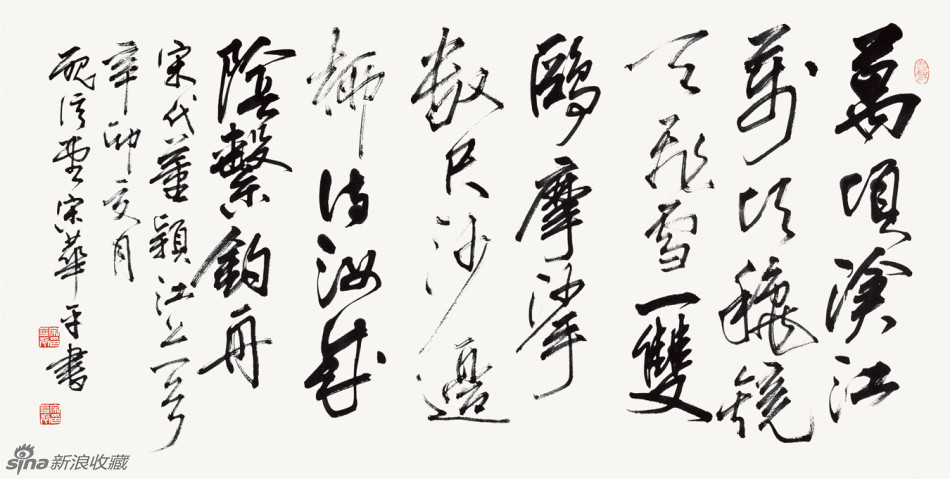 萬頃滄江
萬頃穐鏡
天飛雪一雙
鷗摩挲
數尺沙邊
柳待汝成
陰繫釣舟
宋代董穎江上一首
辛卯月
宋華平書
sina新浪收藏